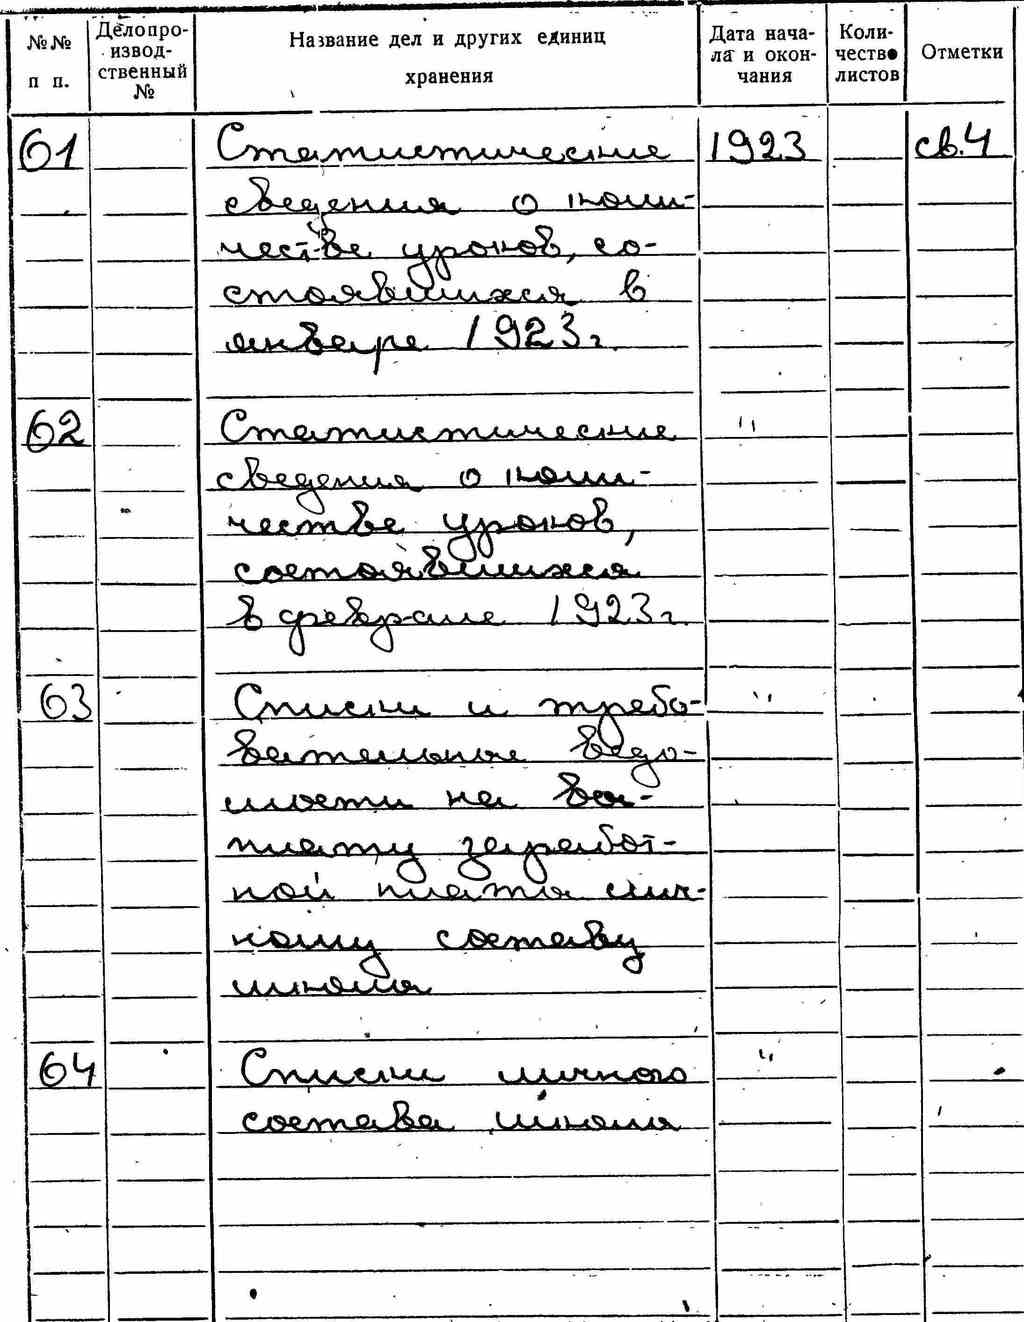 №№ п п.
Делопро-
извод-
ственный
№
Название дел и других единиц
хранения
Дата нача-
ла и окон-
чания
Коли-
чество
листов
Отметки
61 Статистические 1923 св.4
сведения о коли-
честве уроков, со-
стоявшихся в
январе 1923г.
62 Статистические "
сведения о коли-
честве уроков,
состоявшихся
в феврале 1923г.
63 Списки и требо- "
вательные ведо-
мости на вы-
плату заработ-
ной платы лич-
ному составу
школы
64 Списки личного "
состава школы